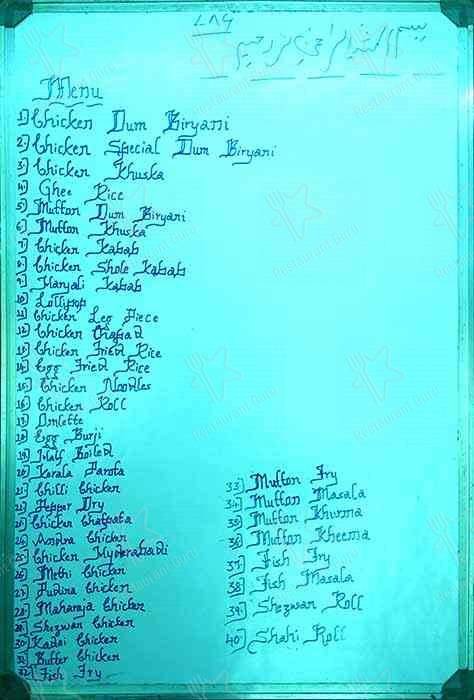 ٧٨٦
بسم الله الرحمن الرحيم
Menu
1) Chicken Dum Biryani
2. Chicken Special Dum Biryani
3) Chicken Khuska
4) Ghee Rice
5) Mutton Dum Biryani
6) Mutton Khuska
7) Chicken Kabab
8) Chicken Shole Kabab
9) Haryali Kabab
10) Lollypop
11) Chicken Leg Piece
12) Chicken
13) Chicken Fried Rice
14) Egg Fried Rice
15) Chicken Noodles
16) Chicken Roll
17) Omlette
18) Egg Burji
19) Half Boiled
20) Karala Parota
21) Chilli Chicken
22) Pepper Dry
23) Chicken Chatpata
24) Andra Chicken
25) Chicken Hyderabadi
26) Methi Chicken
27) Pudina Chicken
28) Maharaja Chicken
29) Shezwan Chicken
30) Kadai Chicken
31) Butter Chicken
32) Fish Fry
33) Mutton Fry
34) Mutton Masala
35) Mutton Khurma
36) Mutton Kheema
37) Fish Fry
38) Fish Masala
39) Shezwan Roll
40) Shahi Roll